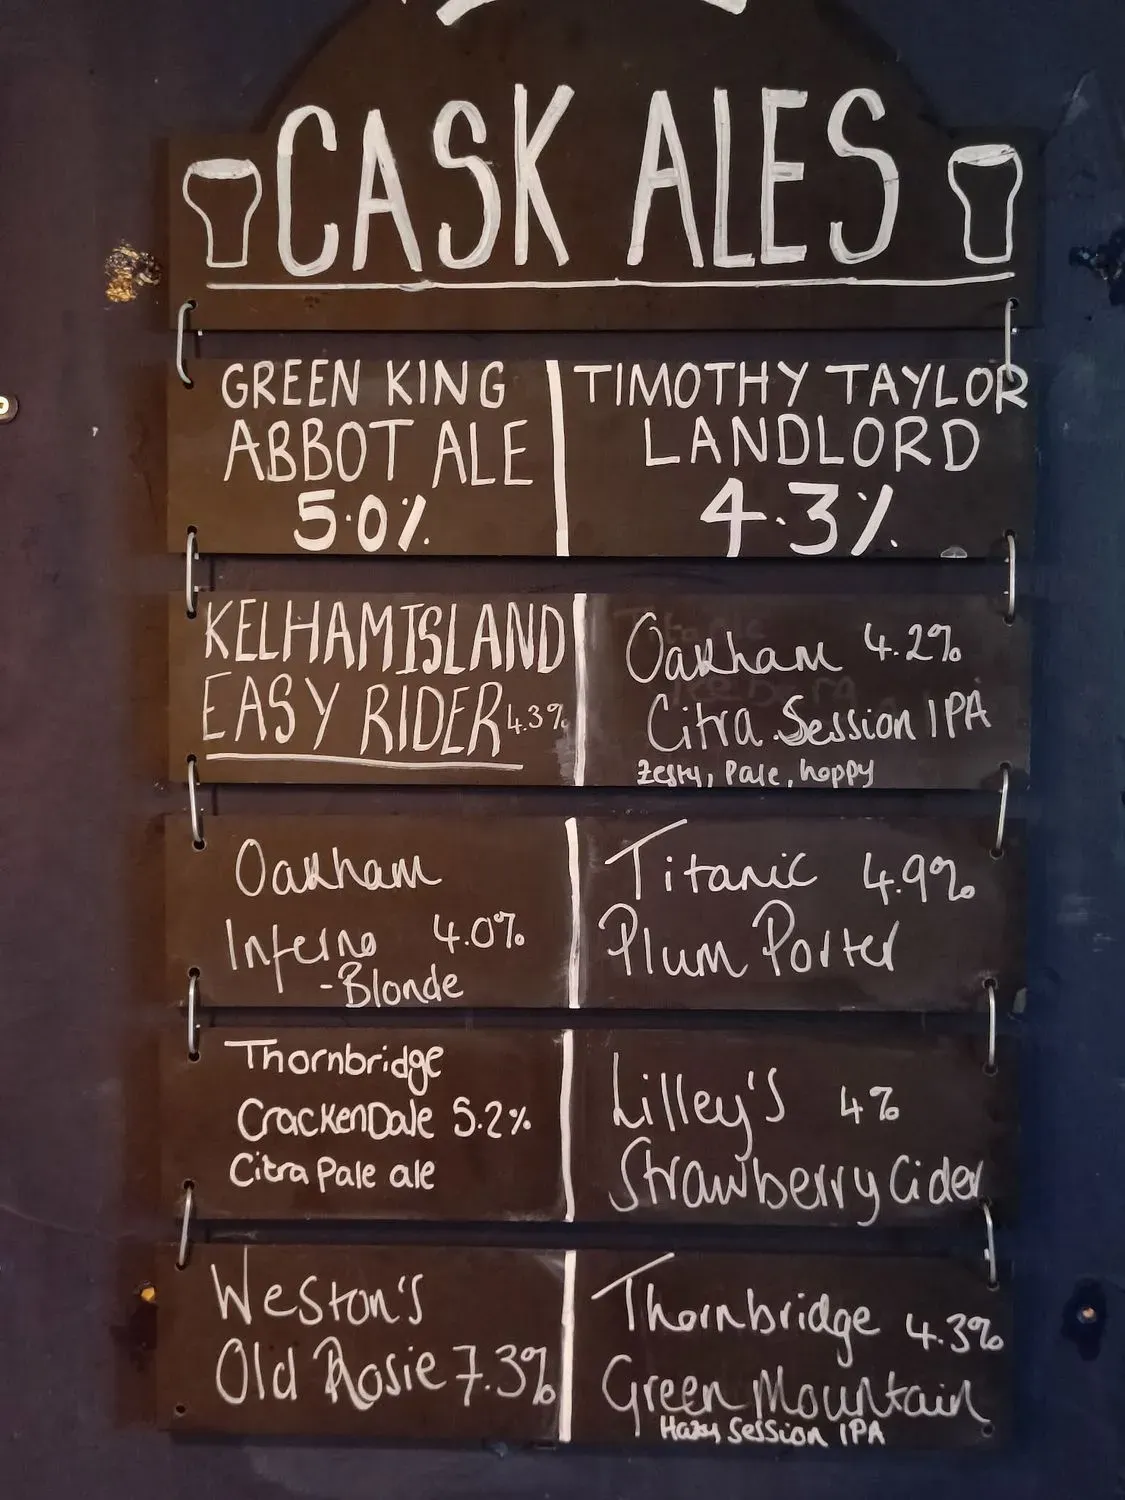 CASK ALES
GREEN KING
ABBOT ALE
5.0%
TIMOTHY TAYLOR
LANDLORD
4.3%
KELHAM ISLAND
EASY RIDER 4.3%
Oakham 4.2%
Citra Session IPA
zesty, pale, hoppy
Oakham
Inferno 4.0%
- Blonde
Titanic 4.9%
Plum Porter
Thornbridge
CrackenDale 5.2%
Citra Pale ale
Lilley's 4%
Strawberry Cider
Weston's
Old Rosie 7.3%
Thornbridge 4.3%
Green Mountain
Hazy Session IPA